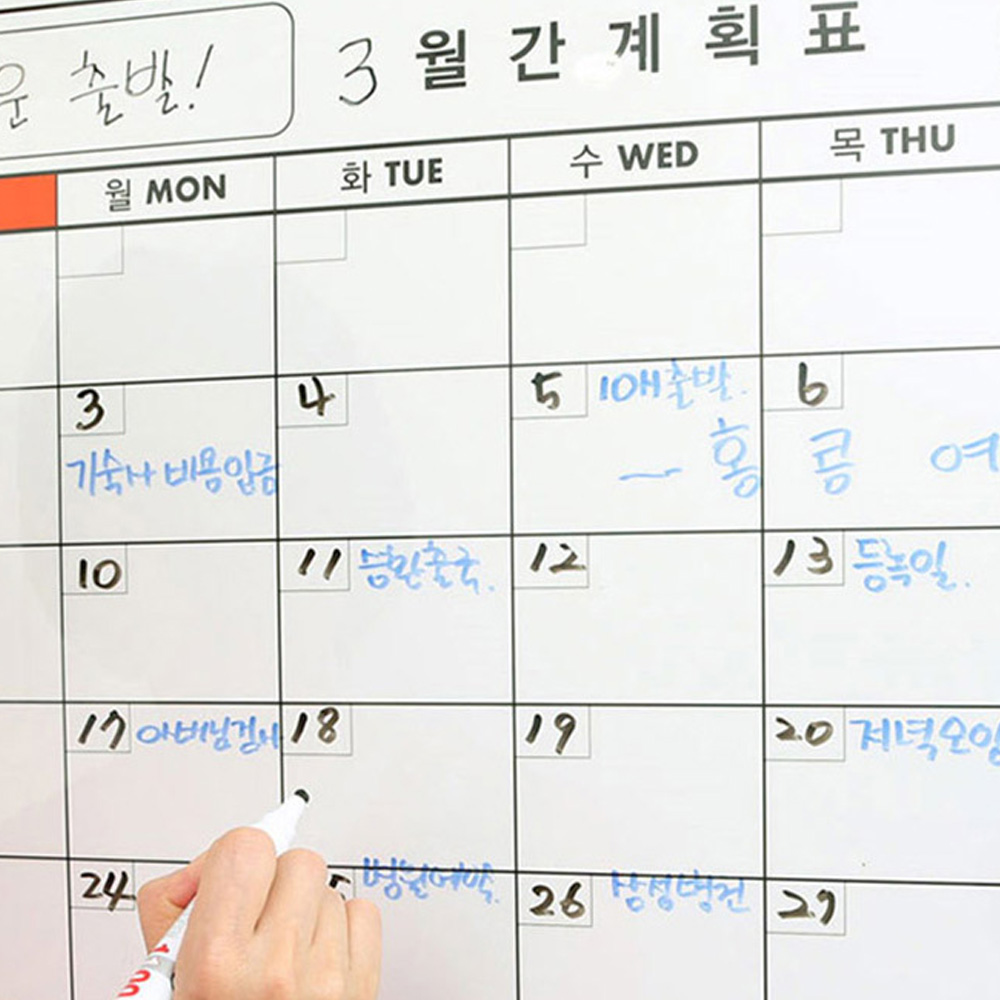 운 출발!
3 월간계획표
월 MON 화 TUE 수 WED 목 THU
3 4 5 10시출발. 6
기숙사 비용입금
~ 홍콩 여
10 11 남편출국. 12 13 등록일.
17 아버님검사 18 19 20 저녁모임
24 5 병원예약. 26 삼성병원 27